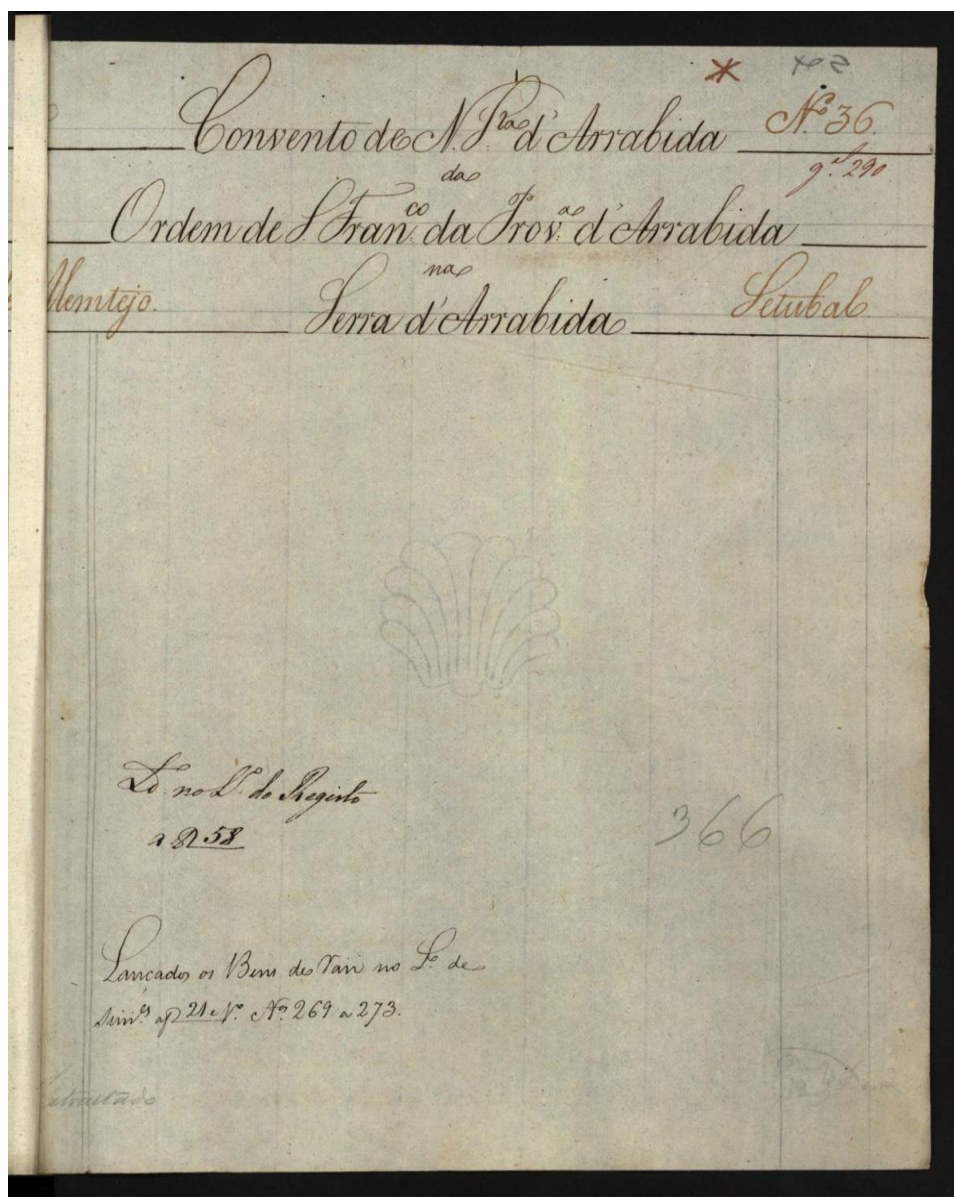 Convento de N. Sra d'Arrabida Nº 36.
da gal 290
Ordem de S. Franco da Prova d'Arrabida
na
Alemtejo. Serra d'Arrabida Setubal.
Lo no Lº do Registo
a fl 58
366
Lançados os Bens de Raiz no Lº de
a fl 21 e Vº Nº 269 a 273.
Extractado